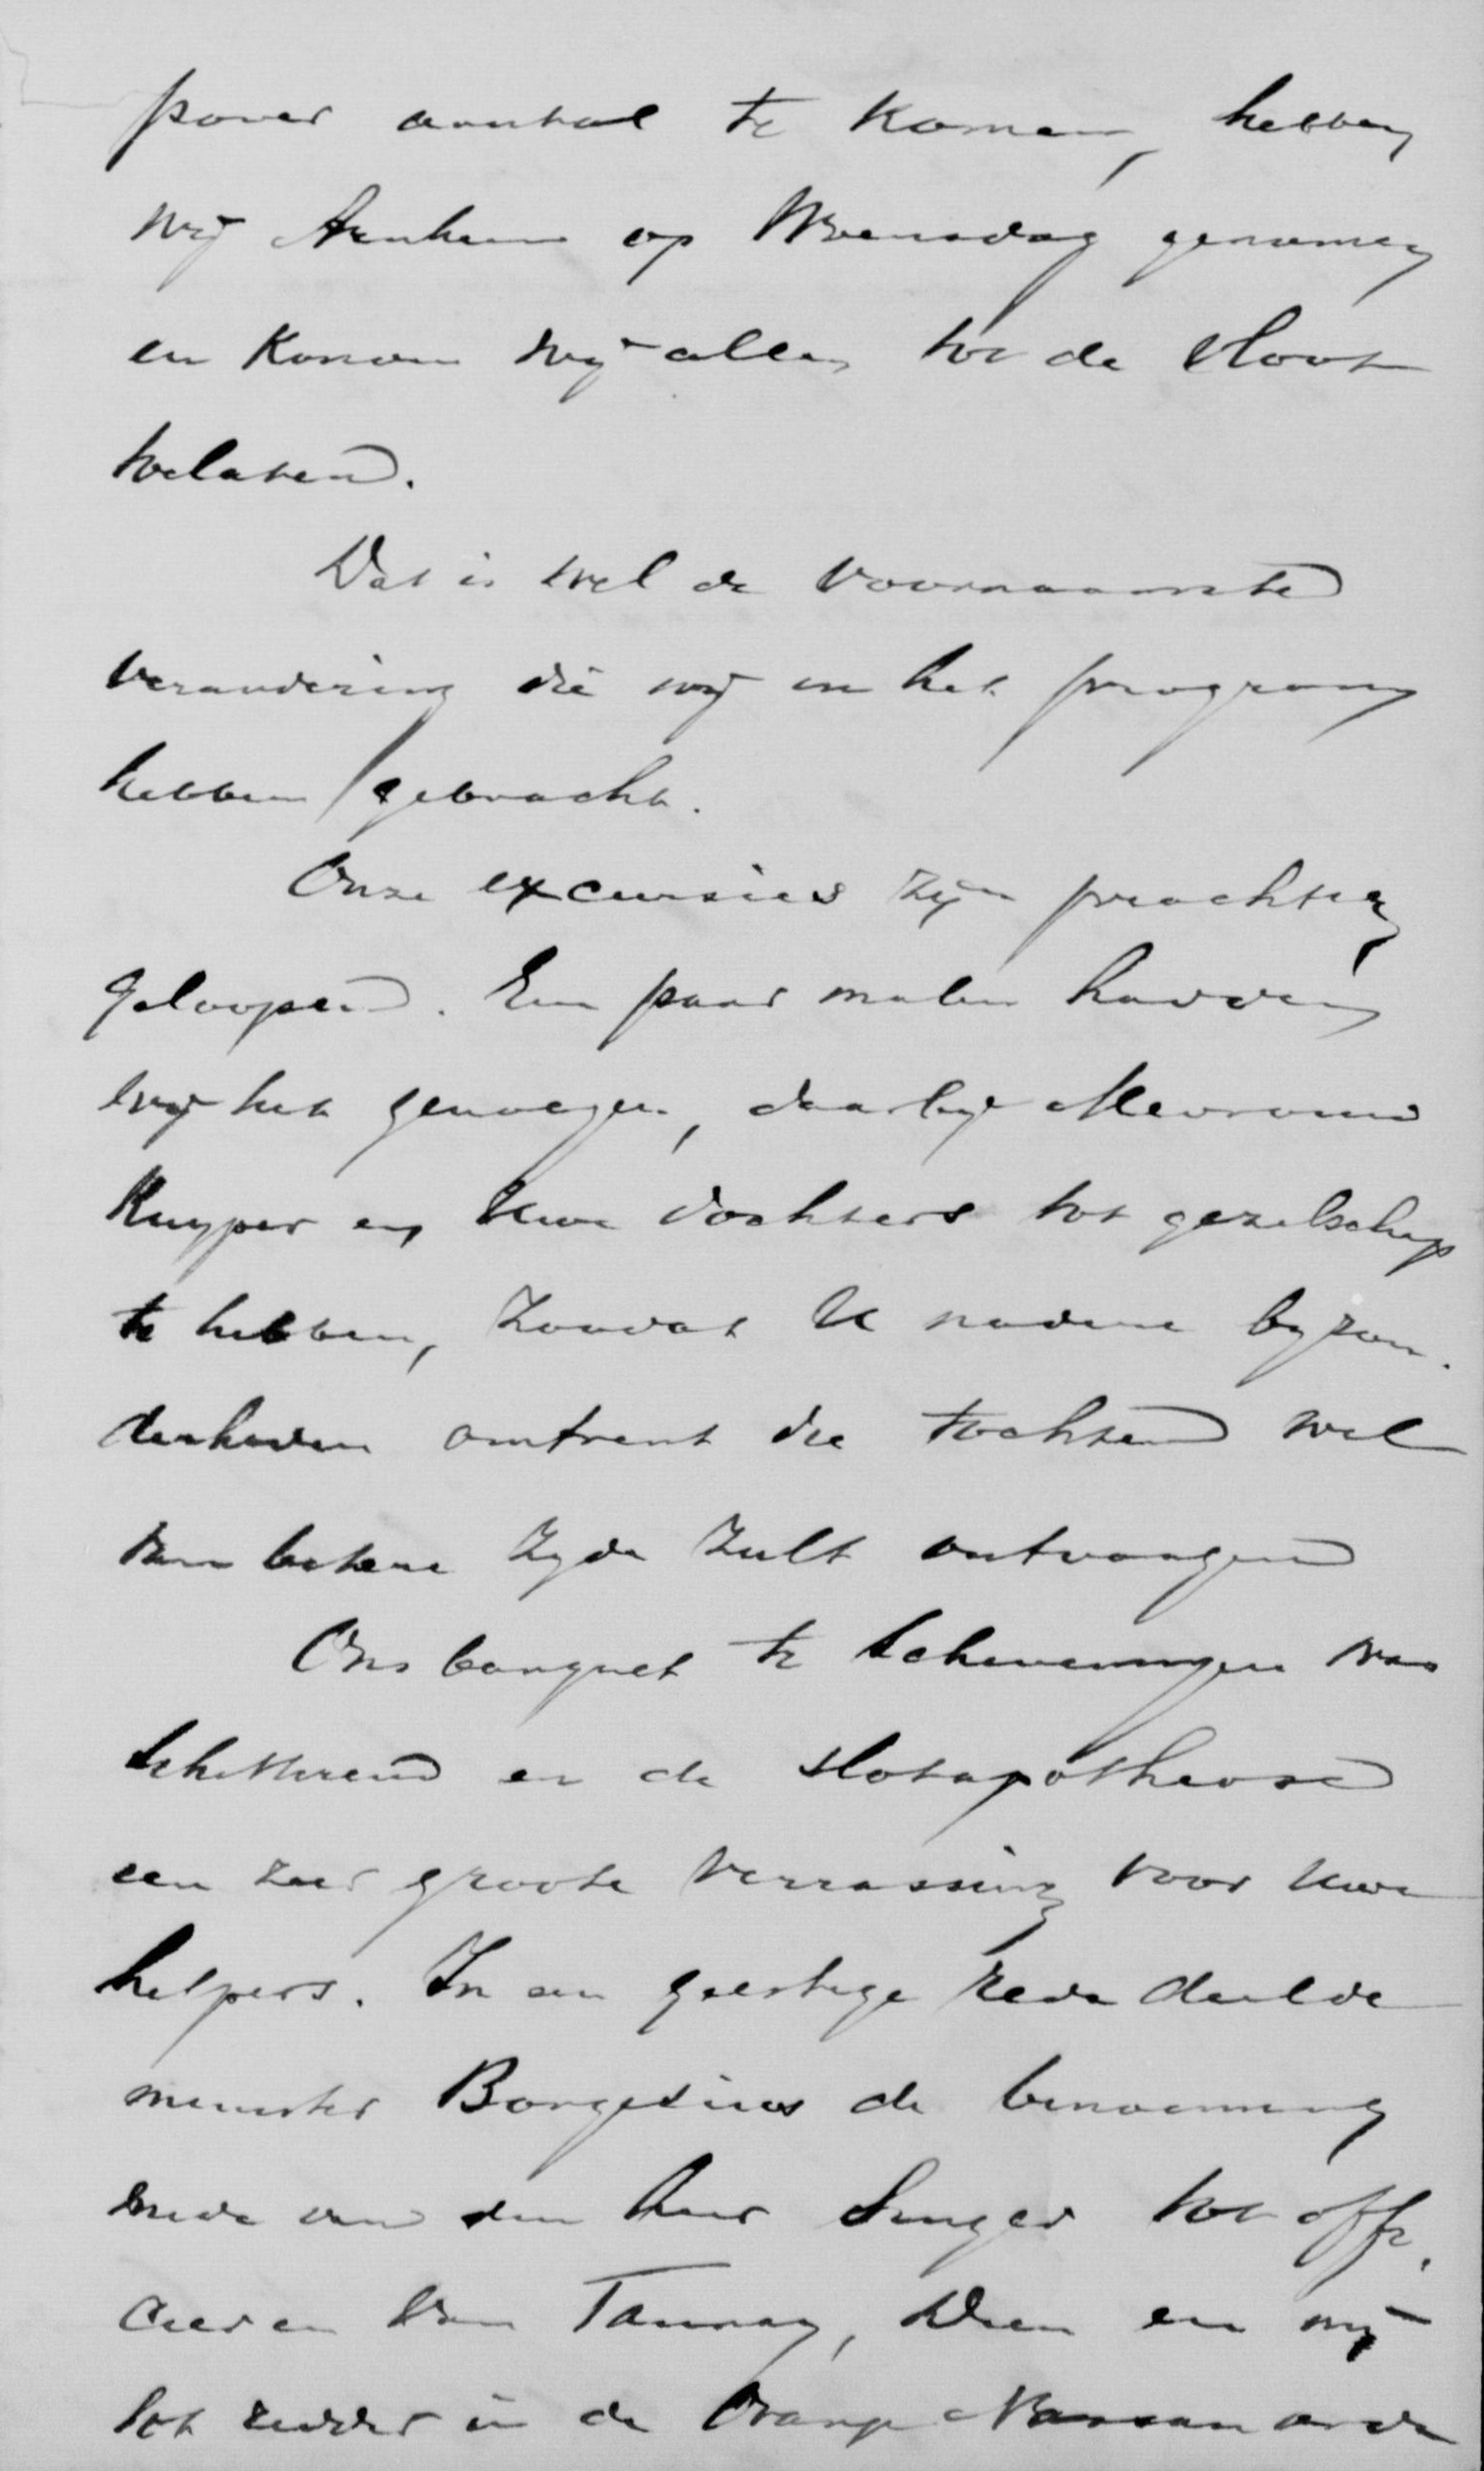 pover aantal te komen, hebben
wij Arnhem op Woensdag genomen
en konden wij allen tot de sloot
toelaten.
Dat is wel de voornaamste
verandering die wij in het program
hebben gebracht.
Onze excursies zijn prachtig
geloopen. Een paar malen hadden
wij het genoegen, daarbij Mevrouw
Kuyper en Uwe dochters tot gezelschap
te hebben, zoodat U nadere byzon-
derheden omtrent die tochten wel
van betere zyde zult ontvangen
Ons banquet te Scheveningen was
schitterend en de slotapotheose
een zeer groote verrassing voor Uwe
helpers. In een geestige rede deelde
minister Borgesius de benoeming
mede van den heer Singer tot offi-
cier en van Taunay, and en mij
tot ridder in de Oranje Nassau orde